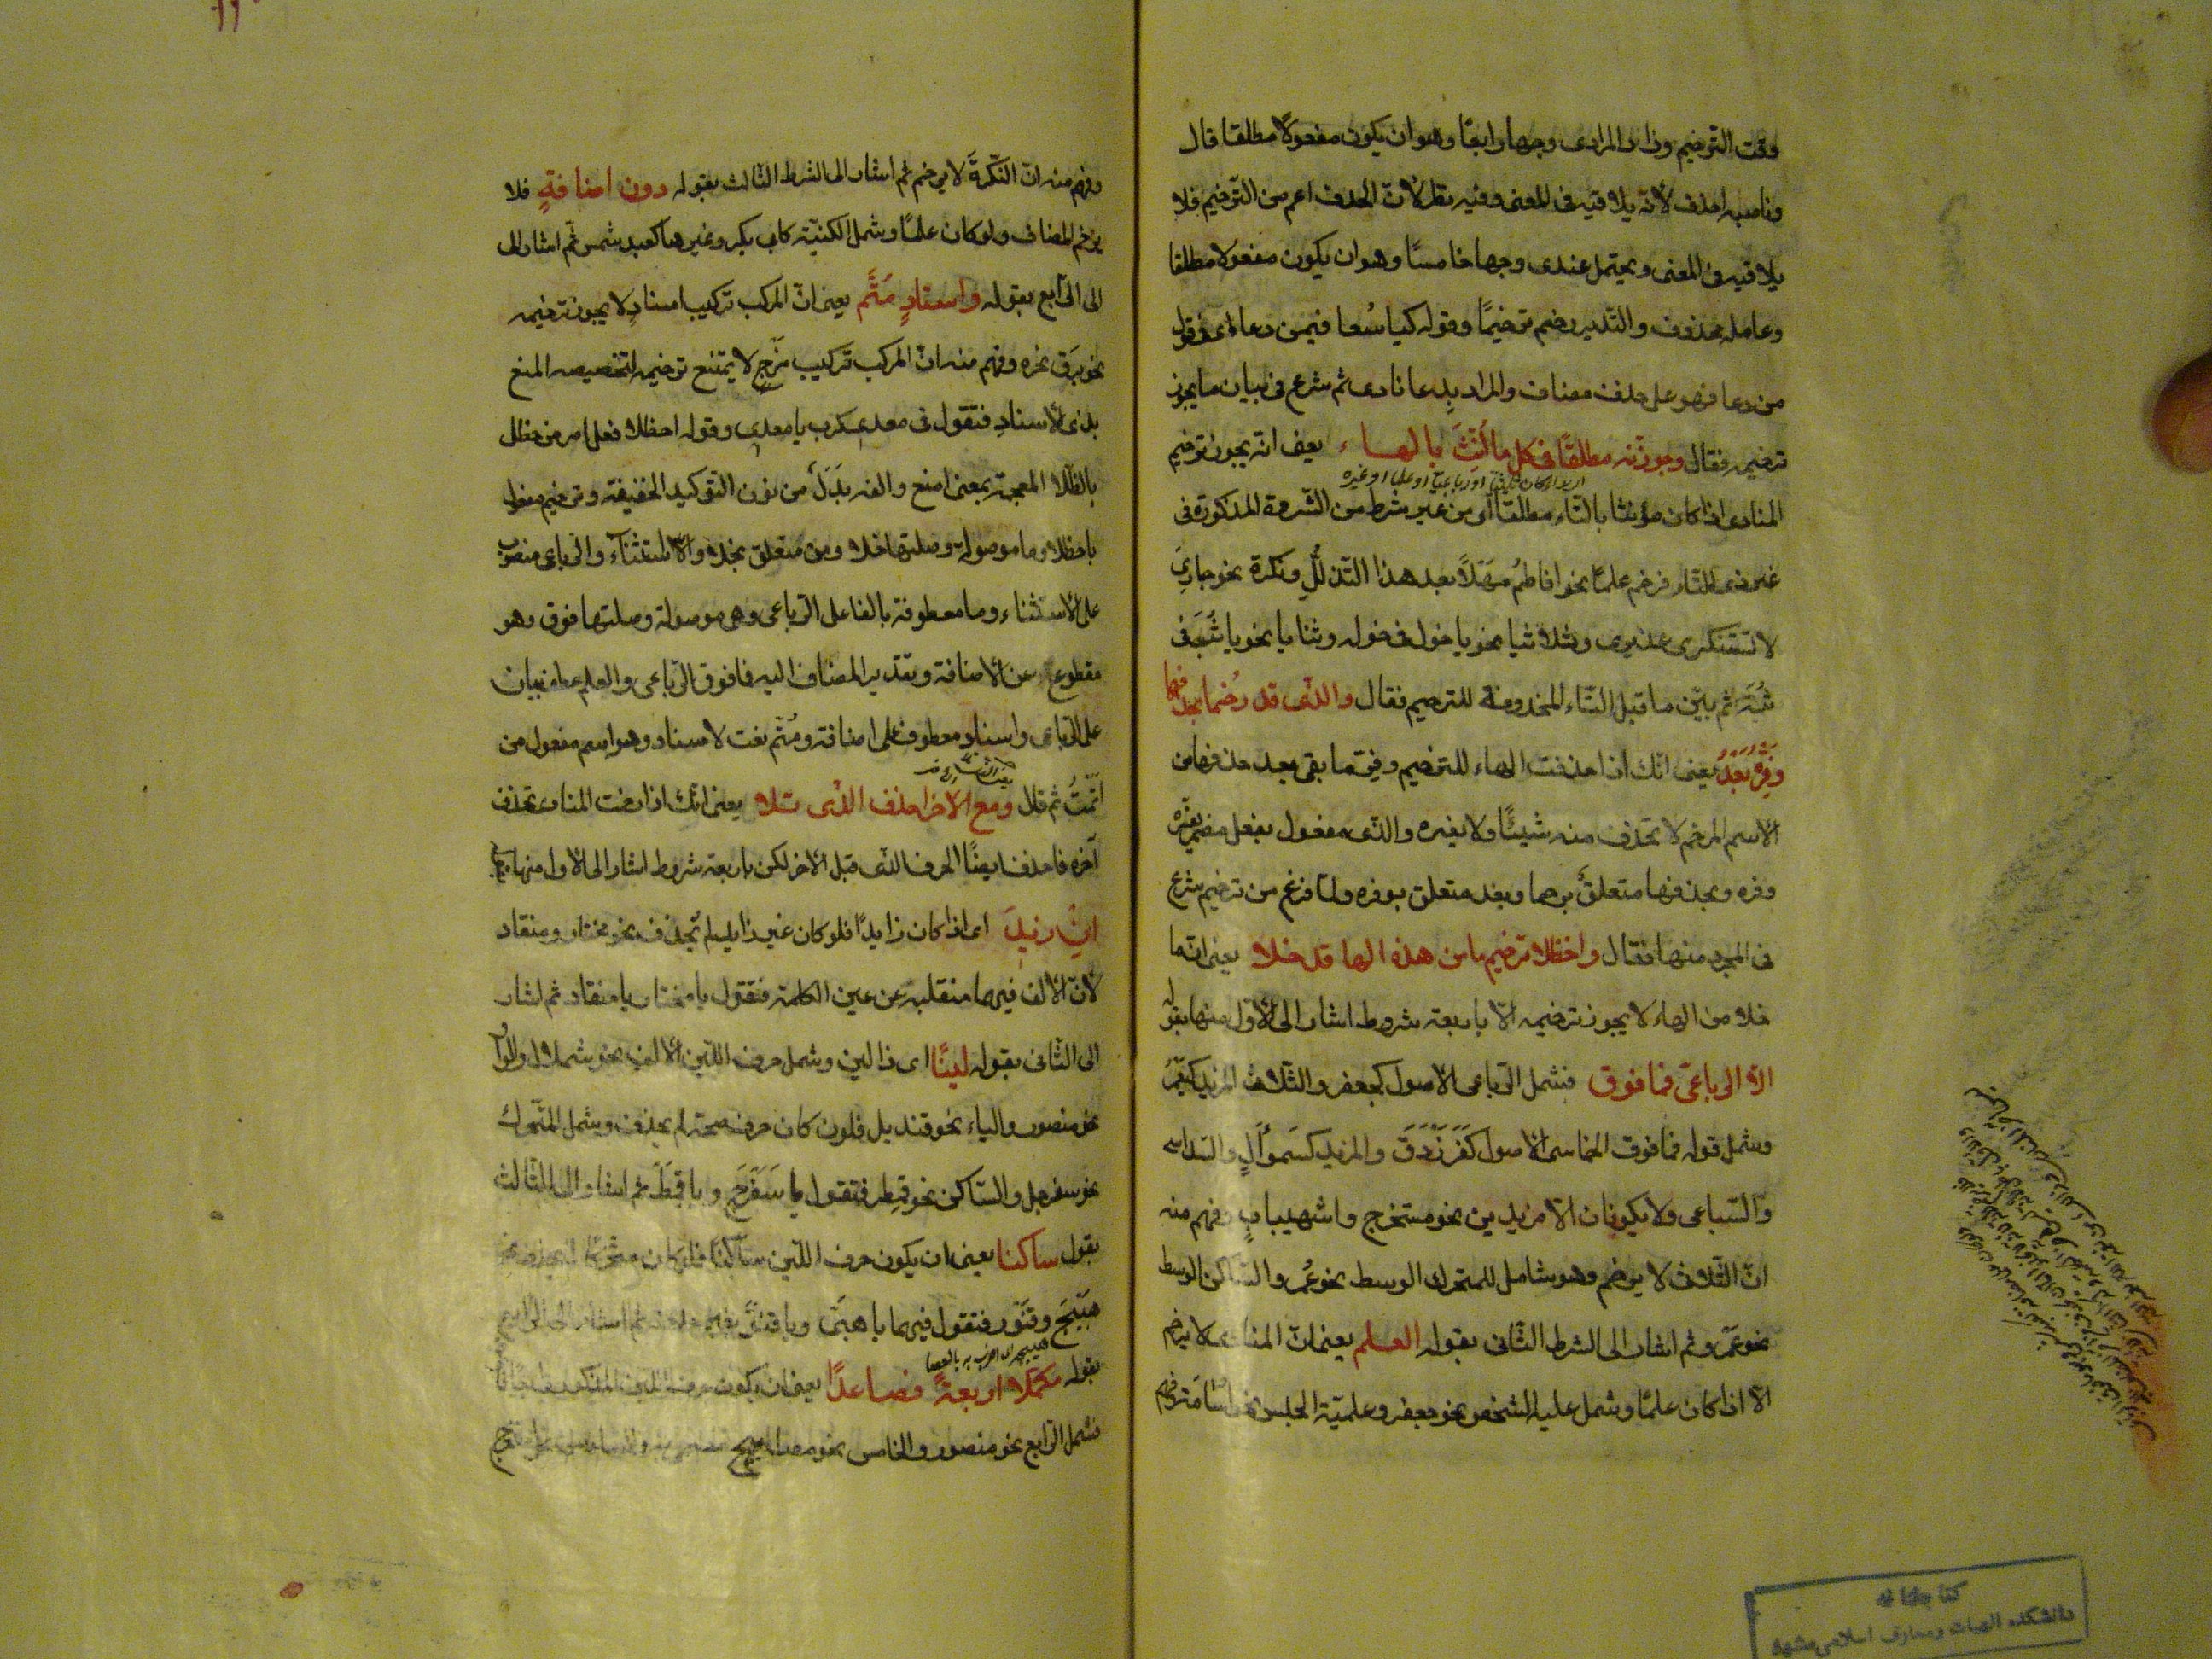 وقت الترخيم وزاد المرادى وجها رابعًا وهو ان يكون مفعولا مطلقا قال
وناصبه احذف لأنّه يلاقيه فى المعنى وفيه نظر لأنّ الحذف اعم من الترخيم فلا
يلاقيه فى المعنى ويحتمل عندى وجها خامسًا وهو ان يكون مفعولا مطلقا
وعامله محذوف والتقدير رخم ترخيمًا وقوله كيا سُعا فيمن دعا اى فى قول
من دعا فهو على حذف مضاف والمراد بدعا نادى ثم شرع فى بيان ما يجوز
ترخيمه فقال وجوّزنه مطلقًا فى كل ما أنّث بالهاء يعنى انّه يجوز ترخيم
المنادى اذا كان مؤنثا بالتاء مطلقًا اى من غير شرط من الشروط المذكورة فى
غير ذى التاء فرخم علما نحو افاطمُ مهلًا بعد هذا التدلّل ونكرة نحو جارِىَ
لا تستنكرى عذيرى وثلاثيا نحو يا خول فى خوله وثنايا نحو يا ثُبَ فى
ثبة ثم بيّن ما قبل التاء المحذوفة للترخيم فقال والذى قد رُخّما بحذفها
وَفِّره بَعْدُ يعنى انّك اذا حذفت الهاء للترخيم وفِّر ما بقى بعد حذفها من
الاسم المرخم لا تحذف منه شيئًا ولا يغيره والذى مفعول بفعل مضمر يفسّره
وفره وبحذفها متعلق برخما وبعد متعلق بوفره ولما فرغ من ترخيم شرع
فى المجرد منها فقال واحظلا ترخيم ما من هذه الها قد خلا يعنى انّ ما
خلا من الهاء لا يجوز ترخيمه الّا باربعة شروط اشار الى الأوّل منها بقوله
الا الرباعىّ فما فوق فشمل الرباعى الأصول كجعفر والثلاثى المزيد
وشمل قوله فما فوق الخماسى الأصول كفَرَزْدَق والمزيد كسَموأَلٍ والسداسى
والسّباعى ولا يكونان الّا مزيدين نحو مستخرج واشهيبابٍ وفهم منه
انّ الثلاثى لا يرخم وهو شامل للمتحرك الوسط نحو عُمر والساكن الوسط
نحو عَمرو ثم اشار الى الشرط الثانى بقوله العلم يعنى انّ المنادى لا يرخم
الا اذا كان علمًا وشمل علمية الشخص نحو جعفر وعلميّة الجنس نحو اسامَة وفهم
وفهم منه انّ النكرة لا يرخم ثم اشار الى الشرط الثالث بقوله دون اضافةٍ فلا
يرخم المضاف ولو كان علمًا وشمل الكنية كابى بكر وغيرها كعبد شمس ثم اشار الى
الى الرابع بقوله واسنادٍ مُتَمّ يعنى انّ المركب تركيب اسنادٍ لا يجوز ترخيمه
نحو برَق نحره وفهم منه انّ المركب تركيب مَزْجٍ لا يمتنع ترخيمه لتخصيصه المنع
بذى الأسناد فتقول فى معدى كرب يا معدى وقوله احظلا فعل امر من حظل
بالظاء المعجمة بمعنى امنع والفه بدَلٌ من نون التوكيد الخفيفة وترخيم مفعول
باحظلا وما موصولة وصلتها خلا ومن متعلق بخلا والّا استثناء والرباعى منصوب
على الأستثناء وما معطوفة بالفا على الرباعى وهى موصولة وصلتها فوق وهو
مقطوع عن الأضافة وتقدير المضاف اليه فما فوق الرباعى والعلم عطف بيان
على الرباعى واسنادٍ معطوف على اضافة ومُتَمّ نعت لاسناد وهو اسم مفعول من
اَتْمَمْتُ ثم قال ومع الاخر احذف الذى تلا يعنى انّك اذا رخمت المنادى بحذف
آخره فاحذف ايضًا الحرف الذى قبل الأخر لكن باربعة شروط اشار الى الأول منها
ان زيدَ اى اذا كان زايدًا فلو كان غير زايد لم تحذف نحو مختار ومنقاد
لأنّ الألف فيهما منقلبة عن عين الكلمة فتقول يا مختا يا منقا ثم اشار
الى الثّانى بقوله لينًا اى ذا لين وشمل حرف اللّين الألف نحو شملال والواو
نحو منصور والياء نحو قنديل فلو كان حرف صحة لم يحذف وشمل المتحرك
نحو سفرجل والساكن نحو قِمَطر فتقول يا سَفَرْجَ ويا قِمَطَ ثم اشار الى الثالث
بقوله ساكنا يعنى ان يكون حرف اللّين ساكنًا فلو كان متحركًا لم يحذف نحو
هَبَيَّخ وقَنَوَّر فتقول فيهما يا هَبَىَّ ويا قَنَوَّ بغير حذف ثم اشار الى الرابع
بقوله مكمّلًا اربعةً فصاعدًا يعنى ان يكون حرف اللين المذكور
فشمل الرابع نحو منصور والخامس نحو مصابيح
كتابخانه
دانشكده الهيات ومعارف اسلامى مشهد